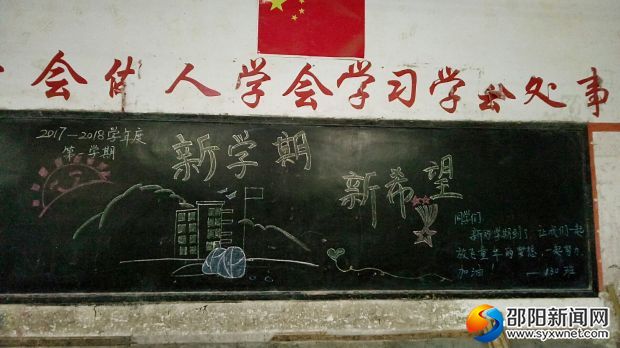 会体人学会学习学会处事
2017—2018学年度
第一学期
新学期
新希望
同学们
新的学期到了，让我们一起
放飞童年的梦想，一起努力
加油！
——130班
邵阳新闻网
www.syxwnet.com